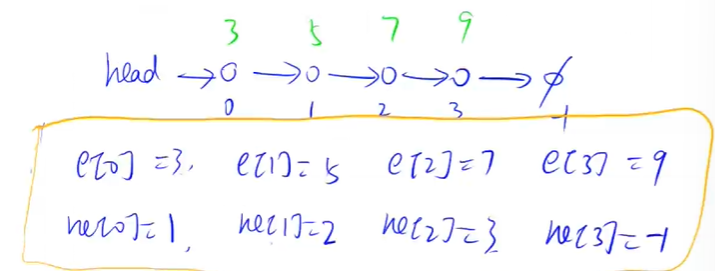 3 5 7 9
head →0→0→0→0→∅
0 1 2 3 -1
e[0]=3, e[1]=5 e[2]=7 e[3]=9
ne[0]=1, ne[1]=2 ne[2]=3 ne[3]=-1